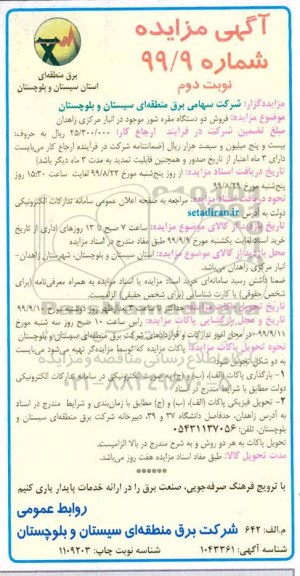 آگهی مزایده
شماره ۹۹/۹
نوبت دوم
برق منطقه‌ای
استان سیستان و بلوچستان
مزایده‌گزار: شرکت سهامی برق منطقه‌ای سیستان و بلوچستان
موضوع مزایده: فروش دو دستگاه مقره شور موجود در انبار مرکزی زاهدان
مبلغ تضمین شرکت در فرایند ارجاع کار: ۲۵/۳۰۰/۰۰۰ ریال به حروف:
بیست و پنج میلیون و سیصد هزار ریال (ضمانتنامه شرکت در فرآینده ارجاع کار می‌بایست
دارای ۳ ماه اعتبار از تاریخ صدور و همچنین قابلیت تمدید به مدت ۳ ماه دیگر باشد)
تاریخ دریافت اسناد مزایده: از روز پنج‌شنبه مورخ ۹۹/۸/۲۲ لغایت ساعت ۱۵:۳۰ روز
پنج‌شنبه مورخ ۹۹/۸/۲۹
نحوه دریافت اسناد مزایده: مراجعه به صفحه اعلان عمومی سامانه تدارکات الکترونیکی
دولت به آدرس setadiran.ir
تاریخ بازدید از کالای موضوع مزایده: ساعت ۷ صبح تا ۱۳ روزهای اداری از تاریخ
خرید اسناد لغایت یکشنبه مورخ ۹۹/۹/۹ طبق مفاد مندرج در اسناد مزایده
محل بازدید از کالای موضوع مزایده: استان سیستان و بلوچستان، شهرستان زاهدان-
انبار مرکزی زاهدان می‌باشد.
ضمنا داشتن رسید سامانه‌ای خرید اسناد مزایده یا اسناد مزایده به همراه معرفی‌نامه (برای
شخص حقوقی) یا کارت شناسایی (برای شخص حقیقی) الزامیست.
حداکثر تا ساعت ظهر روز دوشنبه مورخ ۹۹/۹/۱۰
تاریخ و محل بازگشایی پاکات مزایده: راس ساعت ۱۰ صبح روز سه شنبه مورخ
۹۹/۹/۱۱- در محل امور تدارکات و قراردادهای شرکت برق منطقه‌ای سیستان و بلوچستان
نحوه تحویل پاکات مزایده: پاکات مزایده که توسط مزایده‌گر تهیه می‌شود می‌بایست
به دو شکل تحویل شود:
۱- بارگذاری پاکات (الف)، (ب) و (ج) به صورت الکترونیکی در سامانه تدارکات الکترونیکی
دولت مطابق با شرایط مندرج در اسناد
۲- تحویل فیزیکی پاکات (الف)، (ب) و (ج) مطابق با زمان‌بندی و شرایط مندرج در اسناد
به آدرس زاهدان، حدفاصل دانشگاه ۳۷ و ۳۹، دبیرخانه شرکت برق منطقه‌ای سیستان و
بلوچستان، تلفن: ۰۵۴۳۱۱۳۷۰۵۶
تحویل پاکات به هر دو روش و به شرح مندرج در بالا الزامیست.
مدت تحویل کالا: طبق مفاد اسناد مزایده هفت روز می‌باشد.
با ترویج فرهنگ صرفه‌جویی، صنعت برق را در ارائه خدمات پایدار یاری کنیم
روابط عمومی
م.الف: ۶۴۲ شرکت برق منطقه‌ای سیستان و بلوچستان
شناسه آگهی: ۱۰۴۳۳۶۱ شناسه نوبت چاپ: ۱۱۰۹۲۰۳